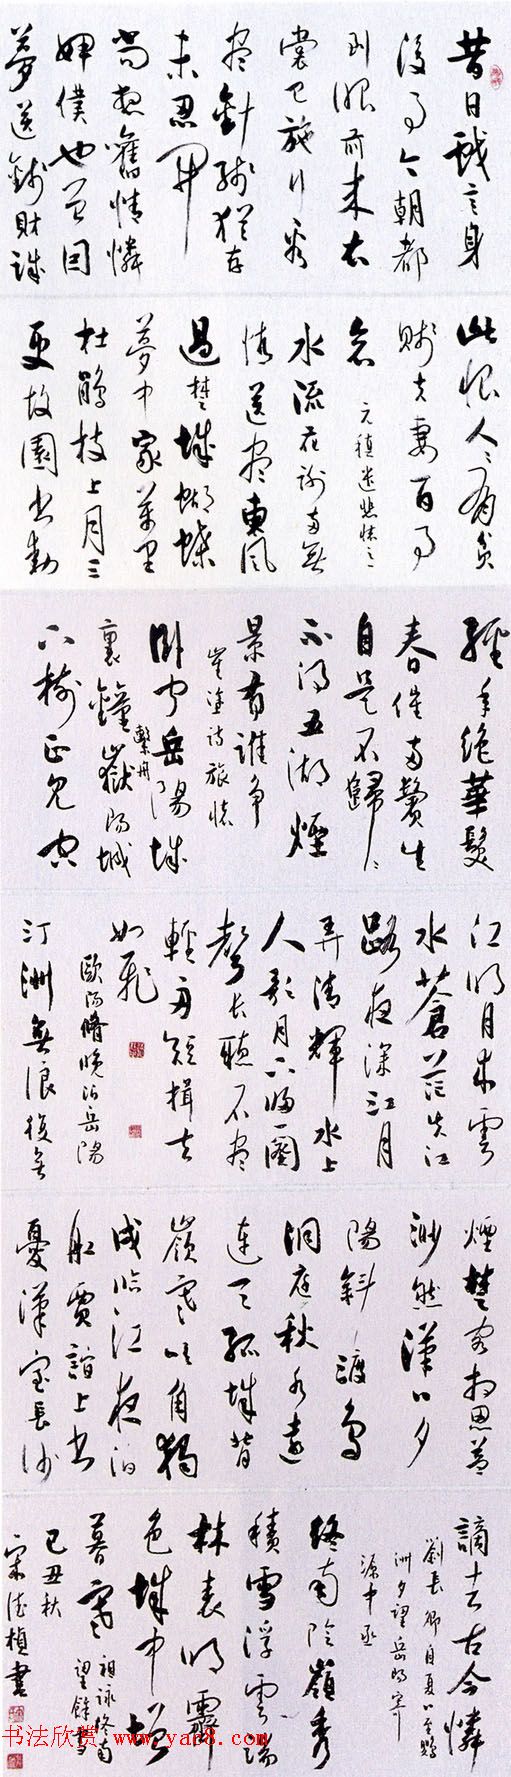 昔日戏言身
後事今朝都
到眼前来衣
裳已施行看
尽針线犹存
未忍開
尚想舊情憐
婢僕也曾因
夢送錢財誠
此恨人人有貧
賤夫妻百事
哀
元稹遣悲懷之二
水流花謝兩無
情送盡東風
過楚城蝴蝶
夢中家萬里
杜鵑枝上月三
更故園書動
經年絕華髮
春催兩鬢生
自是不歸歸
不得五湖煙
景有誰爭
崔塗詩旅懷
臥聞岳陽城
裏鐘繫舟嶽陽城
下樹正見空
江明月來雲
水蒼茫失江
路夜深江月
弄清輝水上
人歌月下歸一闋
聲長聽不盡
輕舟短楫去
如飛
歐陽脩晚泊岳陽
汀洲無浪復無
煙楚客相思益
渺然漢口夕
陽斜渡鳥
洞庭秋水遠
連天孤城背
嶺寒吹角獨
戍臨江夜泊
船賈誼上書
憂漢室長沙
謫去古今憐
劉長卿自夏口至鸚
洲夕望岳陽寄
源中丞
終南陰嶺秀
積雪浮雲端
林表明霽
色城中增
暮寒
祖詠終南
望餘雪
己丑秋
宋德楨書
书法欣赏 www.yac8.com